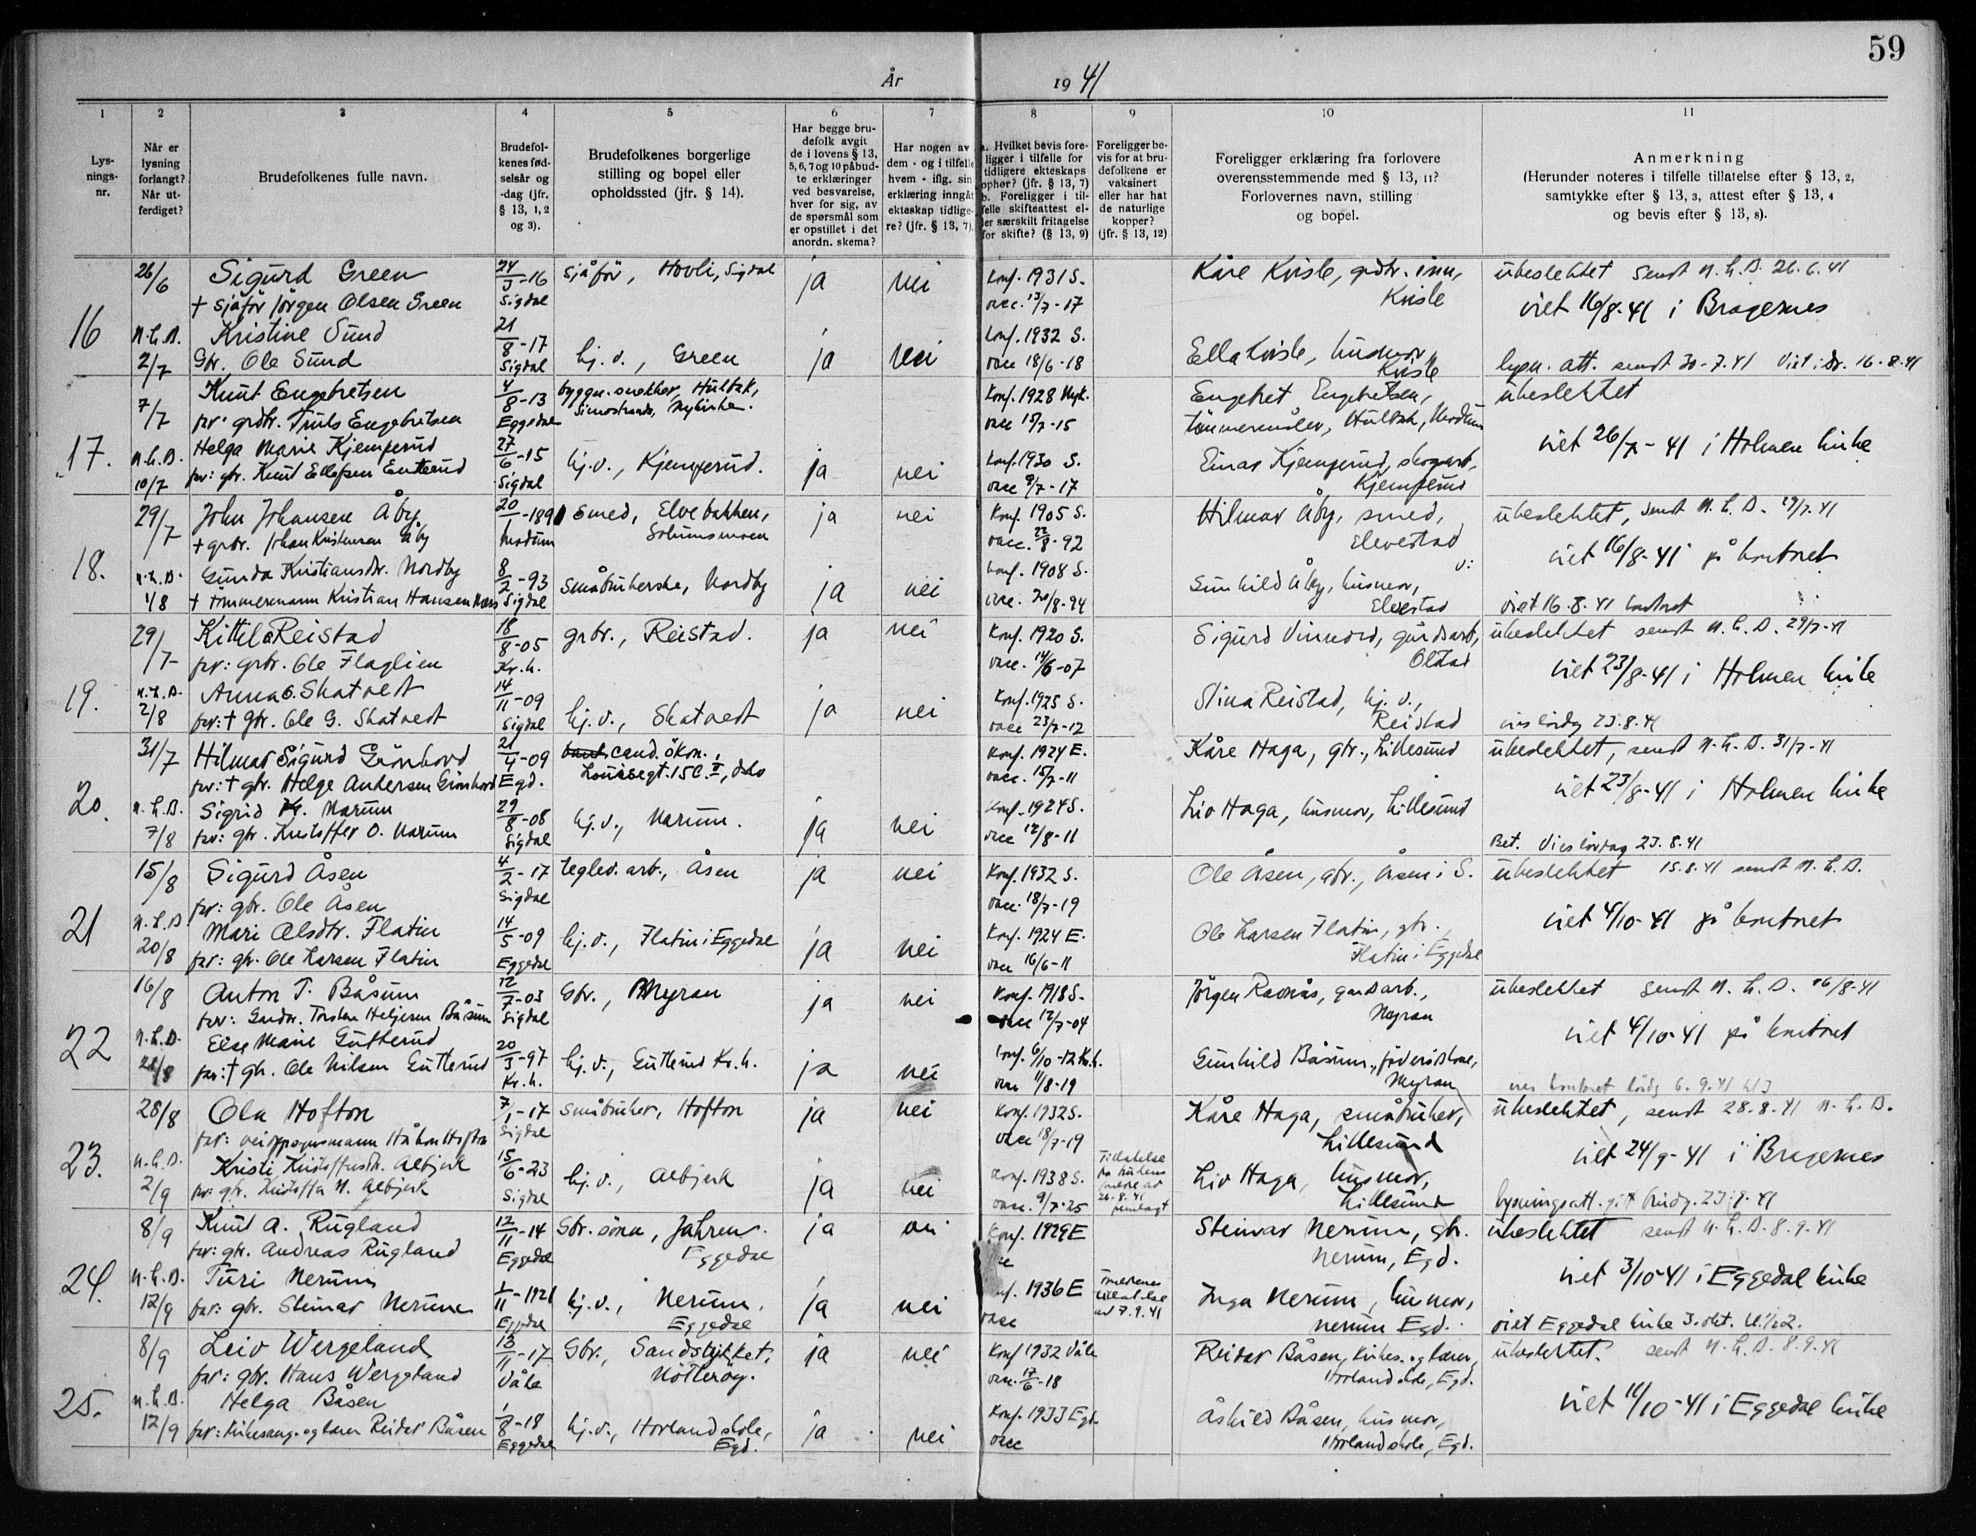 59
År 1941
1 2 3 4 5 6 7 8 9 10 11
Lys-
nings-
nr.
Når er
lysning
forlangt?
Når ut-
ferdiget?
Brudefolkenes fulle navn.
Brudefol-
kenes fød-
selsår og
-dag (jfr.
§ 13, 1, 2
og 3).
Brudefolkenes borgerlige
stilling og bopel eller
opholdssted (jfr. § 14).
Har begge bru-
defolk avgit
de i lovens § 13,
5, 6, 7 og 10 påbud-
te erklæringer
ved besvarelse,
hver for sig, av
de spørsmål som
er opstillet i det
anordn. skema?
Har nogen av
dem - og i tilfelle
hvem - iflg. sin
erklæring inngåt
ekteskap tidlige-
re? (jfr. § 13, 7).
a. Hvilket bevis fore-
ligger i tilfelle for
tidligere ekteskaps
ophør? (jfr. § 13, 7)
b. Foreligger i til-
felle skifteattest el-
ler særskilt fritagelse
for skifte? (§ 13, 9)
Foreligger be-
vis for at bru-
defolkene er
vaksinert
eller har hat
de naturlige
kopper?
(jfr. § 13, 12)
Foreligger erklæring fra forlovere
overensstemmende med § 13, 11?
Forlovernes navn, stilling
og bopel.
Anmerkning
(Herunder noteres i tilfelle tillatelse efter § 13, 2,
samtykke efter § 13, 3, attest efter § 13, 4
og bevis efter § 13, 8).
16
26/6 Sigurd Green 24/3-16 sjåför, Hovli, Sigdal ja nei Konf. 1931 S. Kåre Kvisle, Kvisle ubeslektet sendt N.L.D. 26.6.41
+ sjåför Jörgen Olsen Green Sigdal vacc. 13/7-17 viet 16/8-41 i Bragernes
N.L.D. Kristine Sund 21/8-17 Konf. 1932 S.
2/7 Gbr. Ole Sund Sigdal hj.d., Green ja nei vacc 18/6-18 Ella Kvisle, husmor, Kvisle lysn. att. sendt 30-7.41 Viet i Dr. 16-8.41
17.
7/7 Knut Engebretsen 4/8-13 byggn. snekker, Hulbak, Konf. 1928 Nyk. Engebret Engebretsen, ubeslektet
far: grdbr. Truls Engebretsen Eggedal Simostranda, Nykirke. vacc 15/7-15 tömmermåler, Hulbak, Modum
N.L.D. Helga Marie Kjemperud 27/6-15 hj.d., Kjemperud. ja nei Konf. 1930 S. Einar Kjemperud, skogsarb., viet 26/7-41 i Holmen kirke
10/7 far: gbr. Knut Ellefsen Enterud Sigdal vacc 9/7-17 Kjemperud
18.
29/7 John Johansen Åby 20/-1891 smed, Elvebakken, ja nei Konf. 1905 S. Hilmar Åby, smed, ubeslektet, sendt N.L.D. 29/7.41
+ grbr. Johan Kristensen Åby Modum Solumsmoen vacc. 22/8-92 Elvestad viet 16/8-41 på kontoret
N.L.D. Gunda Kristiansdtr. Nordby 8/2-93 småbrukerske, Nordby ja nei Konf. 1908 S. Gunhild Åby, husmor,
1/8 + tömmermann Kristian Hansen Sigdal vacc. 20/8-94 Elvestad viet 16.8.41 kontoret
19.
29/7 Kittil Reistad 18/8-05 grbr., Reistad. ja nei Konf. 1920 S. Sigurd Vinnord, gårdsarb., ubeslektet sendt N.L.D. 29/7-41
far: grbr. Ole Flaglien Kr.h. vacc. 14/6-07 Olstad viet 23/8-41 i Holmen kirke
N.L.D. Anna O. Skatvedt 14/11-09 Konf. 1925 S. Stina Reistad, hj.d.,
2/8 far: + gbr. Ole G. Skatvedt Sigdal hj.d., Skatvedt ja nei vacc 23/7-12 Reistad vies lördag 23.8.41
20.
31/7 Hilmar Sigurd Grönhovd 21/4-09 cand. ökon., Konf. 1924 E. Kåre Haga, gbr., Lillesund ubeslektet, sendt N.L.D. 31/7-41
far: + gbr. Helge Andersen Grönhovd Egd. Louisesgt. 15 C. II, Oslo vacc. 15/7-11 viet 23/8-41 i Holmen kirke
N.L.D. Sigrid Kr. Narum 29/8-08 hj.d., Narum. ja nei Konf. 1924 S. Liv Haga, husmor, Lillesund
7/8 far: gbr. Kristoffer O. Narum Sigdal vacc 12/8-11 Bet. Vies lördag 23.8.41
21
15/8 Sigurd Åsen 4/2-17 teglv. arb., Åsen ja nei Konf. 1932 S. Ole Åsen, gbr., Åsen i S. ubeslektet 15.8.41 sendt N.L.D.
far: gbr. Ole Åsen Sigdal vacc. 18/7-19 viet 4/10-41 på kontoret
N.L.D Mari Olsdtr. Flatin 14/5-09 hj.d., Flatin i Eggedal ja nei Konf. 1924 E. Ole Larsen Flatin, gbr.,
20/8 far: gbr. Ole Larsen Flatin Eggedal vacc 16/6-11 Flatin i Eggedal
22
16/8 Anton T. Båsum 12/7-03 Gbr., Myran ja nei Konf. 1918 S. Jörgen Ramås, gårdsarb., ubeslektet sendt N.L.D. 16/8-41
far: Gardbr. Torsten Helgesen Båsum Sigdal vacc 12/7-04 Myran viet 6/10-41 på kontoret
N.L.D. Else Marie Gutterud 20/3-97 hj.d., Gutterud Kr.h. ja nei konf. 6/10-12 Kr.h. Gunhild Båsum, föderådskone,
21/8 far: + gbr. Ole Nilsen Gutterud Kr.h. vacc 11/8-19 Myran vies kontoret lördg 6.9.41
23.
28/8 Ola Hofton 7/1-17 småbruker, Hofton ja nei Konf. 1932 S. Kåre Haga, småbruker, ubeslektet, sendt 28.8.41 N.L.D.
far: veioppsynsmann Håkon Hofton Sigdal vacc 18/7-19 Lillesund viet 24/9-41 i Bragernes
N.L.D. Kristi Kristoffersdtr. Albjerk 15/6-23 hj.d., Albjerk ja nei Konf. 1938 S. Tillatelse fra brudens foreldre av 26.8.41 fremlagt Liv Haga, husmor,
2/9 far: gbr. Kristoffer N. Albjerk Sigdal vacc. 9/7-25 Lillesund
24.
8/9 Knut A. Rugland 12/11-14 Gbr. sönn, Jahren. ja nei Konf. 1929 E Steinar Nerum, gbr. ubeslektet sendt N.L.D. 8.9.41
far: gbr. Andreas Rugland Eggedal Eggedal Nerum, Egd. viet 3/10-41 i Eggedal kirke
N.L.D. Turi Nerum 1/11-1921 hj.d., Nerum, ja nei 1936 E Inga Nerum, husmor,
12/9 far: gbr. Steinar Nerum Eggedal Eggedal vacc Nerum Egd. viet Eggedal kirke 3. okt. kl. 1/2 2.
25.
8/9 Leiv Wergeland 13/11-17 Gbr., Sandstykket, ja nei Konf 1932 Våle Reidar Båsen, kirkes. og lærer, ubeslektet. sendt N.L.D. 8.9.41
far: gbr. Hans Wergeland Våle Nötteröy. vacc. 17/6-18 Horland skole, Egd.
N.L.D. Helga Båsen 1/8-18 hj.d., Horland skole, ja nei Konf. 1933 Egd. Åshild Båsen, husmor, viet 11/10-41 i Eggedal kirke
12/9 far: kirkesang. og lærer Reidar Båsen Eggedal Egd. vacc Horland skole, Egd.